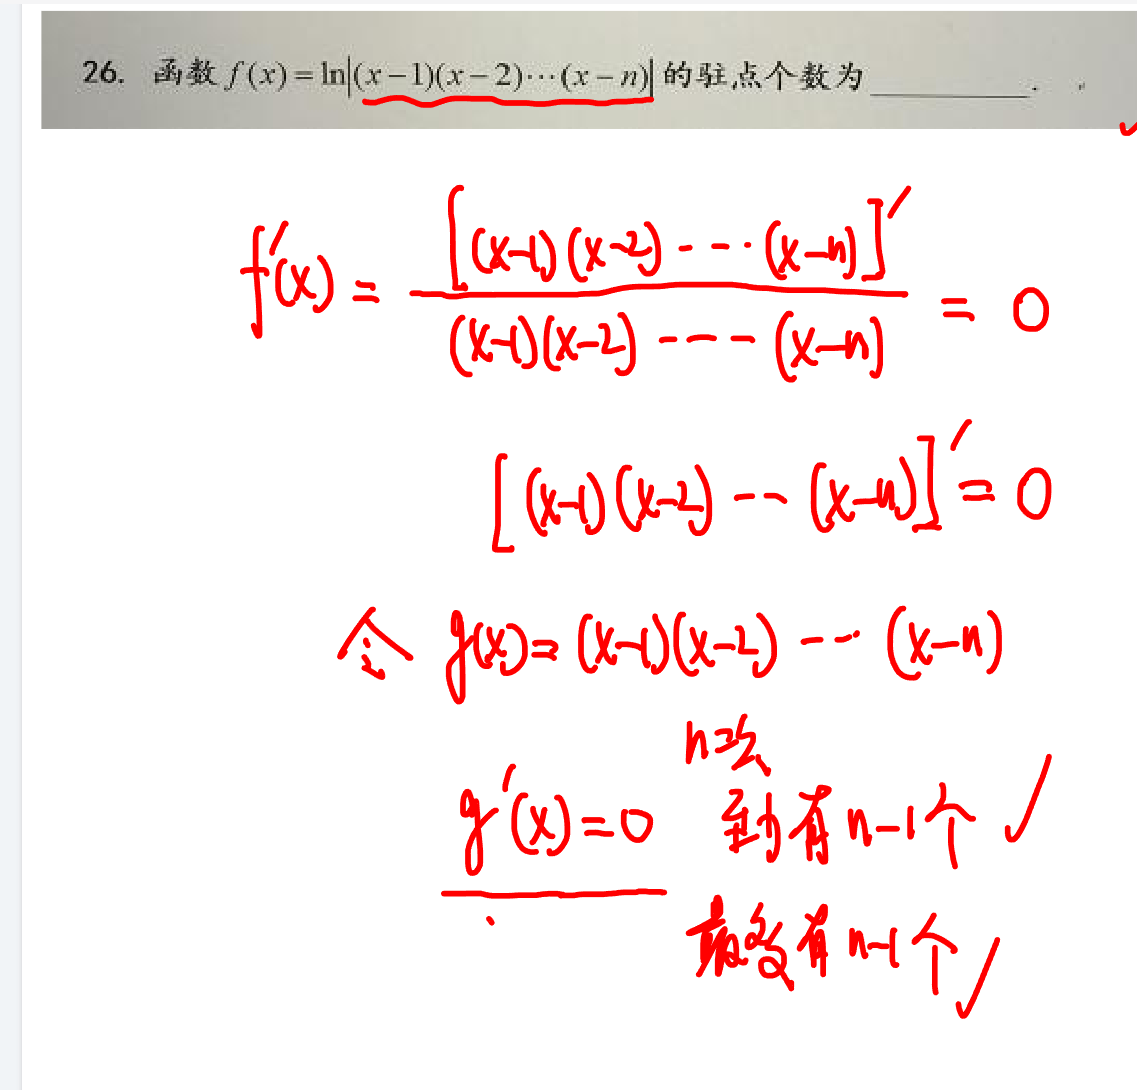 26. 函数 f(x)=ln|(x−1)(x−2)⋯(x−n)| 的驻点个数为________.
f'(x) = [(x-1)(x-2)----(x-n)]' / (x-1)(x-2)----(x-n) = 0
[(x-1)(x-2)---(x-n)]' = 0
令 g(x)=(x-1)(x-2)---(x-n)
n次
g'(x)=0 至少有n-1个 ✓
最多有n-1个 ✓